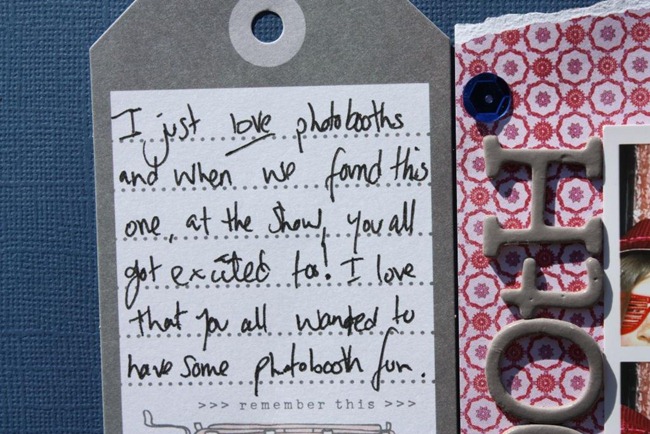 I just love photobooths
and when we found this
one, at the show, you all
got excited too! I love
that you all wanted to
have some photobooth fun.
>>> remember this >>>
otH